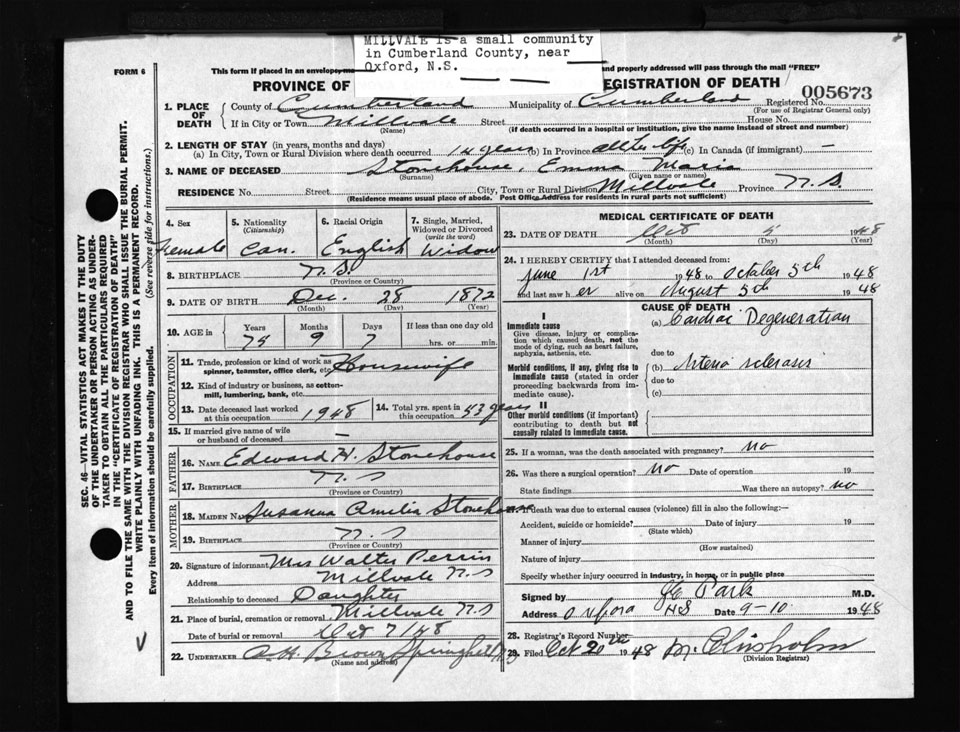 MILLVALE is a small community
in Cumberland County, near
Oxford, N.S.
FORM 6
This form if placed in an envelope, and properly addressed will pass through the mail "FREE"
PROVINCE OF REGISTRATION OF DEATH
005673
1. PLACE OF DEATH
County of Cumberland Municipality of Cumberland Registered No.
(For use of Registrar General only)
If in City or Town Millvale Street House No.
(Name) (if death occurred in a hospital or institution, give the name instead of street and number)
2. LENGTH OF STAY (in years, months and days)
(a) In City, Town or Rural Division where death occurred 14 years (b) In Province all her life (c) In Canada (if immigrant) —
3. NAME OF DECEASED Stonehouse, Emma Maria
(Surname) (Given name or names)
RESIDENCE No. Street City, Town or Rural Division Millvale Province N.S.
(Residence means usual place of abode. Post Office Address for residents in rural parts not sufficient)
4. Sex Female
5. Nationality (Citizenship) Can.
6. Racial Origin English
7. Single, Married, Widowed or Divorced (write the word) Widow
8. BIRTHPLACE N.S.
(Province or Country)
9. DATE OF BIRTH Dec. 28 1872
(Month) (Day) (Year)
10. AGE in Years Months Days If less than one day old
75 9 7 hrs. or min.
OCCUPATION
11. Trade, profession or kind of work as spinner, teamster, office clerk, etc. Housewife
12. Kind of industry or business, as cotton-mill, lumbering, bank, etc.
13. Date deceased last worked at this occupation 1948
14. Total yrs. spent in this occupation 53 years
15. If married give name of wife or husband of deceased —
FATHER
16. NAME Edward H. Stonehouse
17. BIRTHPLACE N.S
(Province or Country)
MOTHER
18. MAIDEN NAME Susanna Amilia Stonehouse
19. BIRTHPLACE N.S
(Province or Country)
20. Signature of informant Mrs Walter Perrin
Address Millvale N.S
Relationship to deceased Daughter
21. Place of burial, cremation or removal Millvale N.S
Date of burial or removal Oct 7/48
22. UNDERTAKER A.H. Brown Springhill N.S
(Name and address)
MEDICAL CERTIFICATE OF DEATH
23. DATE OF DEATH Oct 5 1948
(Month) (Day) (Year)
24. I HEREBY CERTIFY that I attended deceased from:
June 1st 1948 to October 5th 1948
and last saw her alive on August 5th 1948
CAUSE OF DEATH
I
Immediate cause
Give disease, injury or complication which caused death, not the mode of dying, such as heart failure, asphyxia, asthenia, etc.
(a) Cardiac Degeneration
due to
Morbid conditions, if any, giving rise to immediate cause (stated in order proceeding backwards from immediate cause).
(b) Arterio sclerosis
due to
(c)
II
Other morbid conditions (if important) contributing to death but not causally related to immediate cause.
25. If a woman, was the death associated with pregnancy? no
26. Was there a surgical operation? No Date of operation 19
State findings Was there an autopsy? no
death was due to external causes (violence) fill in also the following:—
Accident, suicide or homicide? Date of injury 19
(State which)
Manner of injury
(How sustained)
Nature of injury
Specify whether injury occurred in industry, in home, or in public place
Signed by Park M.D.
Address Oxford NS Date 9-10 1948
28. Registrar's Record Number
29. Filed Oct 20th 1948 M. Chisholm
(Division Registrar)
SEC. 46—VITAL STATISTICS ACT MAKES IT THE DUTY
OF THE UNDERTAKER OR PERSON ACTING AS UNDER-
TAKER TO OBTAIN ALL THE PARTICULARS REQUIRED
IN THE "CERTIFICATE OF REGISTRATION OF DEATH"
AND TO FILE THE SAME WITH THE DIVISION REGISTRAR WHO SHALL ISSUE THE BURIAL PERMIT.
WRITE PLAINLY WITH UNFADING INK. THIS IS A PERMANENT RECORD.
Every item of information should be carefully supplied. (See reverse side for instructions.)